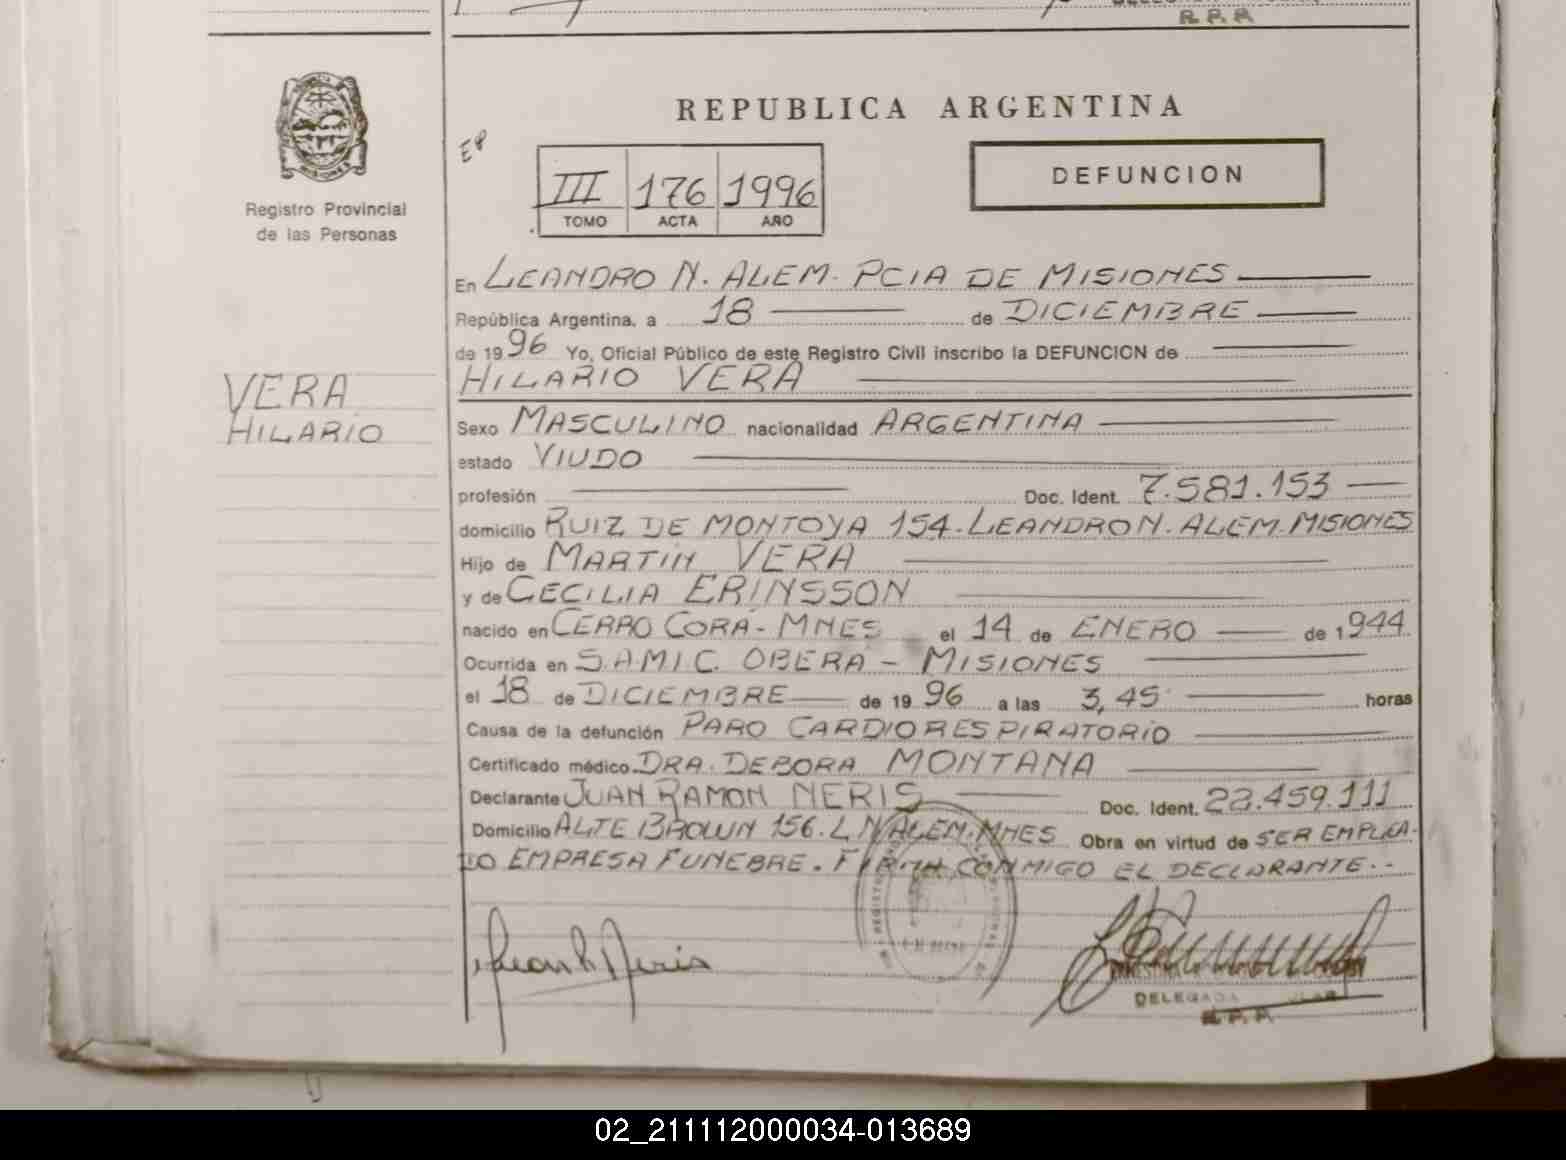 R. P. P.
MISIONES
Registro Provincial
de las Personas
REPUBLICA ARGENTINA
III 176 1996
TOMO ACTA AÑO
DEFUNCION
En LEANDRO N. ALEM. PCIA DE MISIONES
República Argentina, a 18 de DICIEMBRE
de 1996 Yo, Oficial Público de este Registro Civil inscribo la DEFUNCION de
HILARIO VERA
VERA
HILARIO
Sexo MASCULINO nacionalidad ARGENTINA
estado VIUDO
profesión Doc. Ident. 7.581.153
domicilio RUIZ DE MONTOYA 154. LEANDRO N. ALEM. MISIONES
Hijo de MARTIN VERA
y de CECILIA ERINSSON
nacido en CERRO CORÁ - MNES el 14 de ENERO de 1944
Ocurrida en S.A.M.I.C. OBERA - MISIONES
el 18 de DICIEMBRE de 1996 a las 3,45 horas
Causa de la defunción PARO CARDIORESPIRATORIO
Certificado médico DRA. DEBORA MONTANA
Declarante JUAN RAMON NERIS Doc. Ident. 22.459.111
Domicilio ALTE BROWN 156. L N ALEM. MNES Obra en virtud de SER EMPLEA-
DO EMPRESA FUNEBRE. FIRMA CONMIGO EL DECLARANTE.-
Juan R Neris
DELEGADA
R. P. P.
02_211112000034-013689